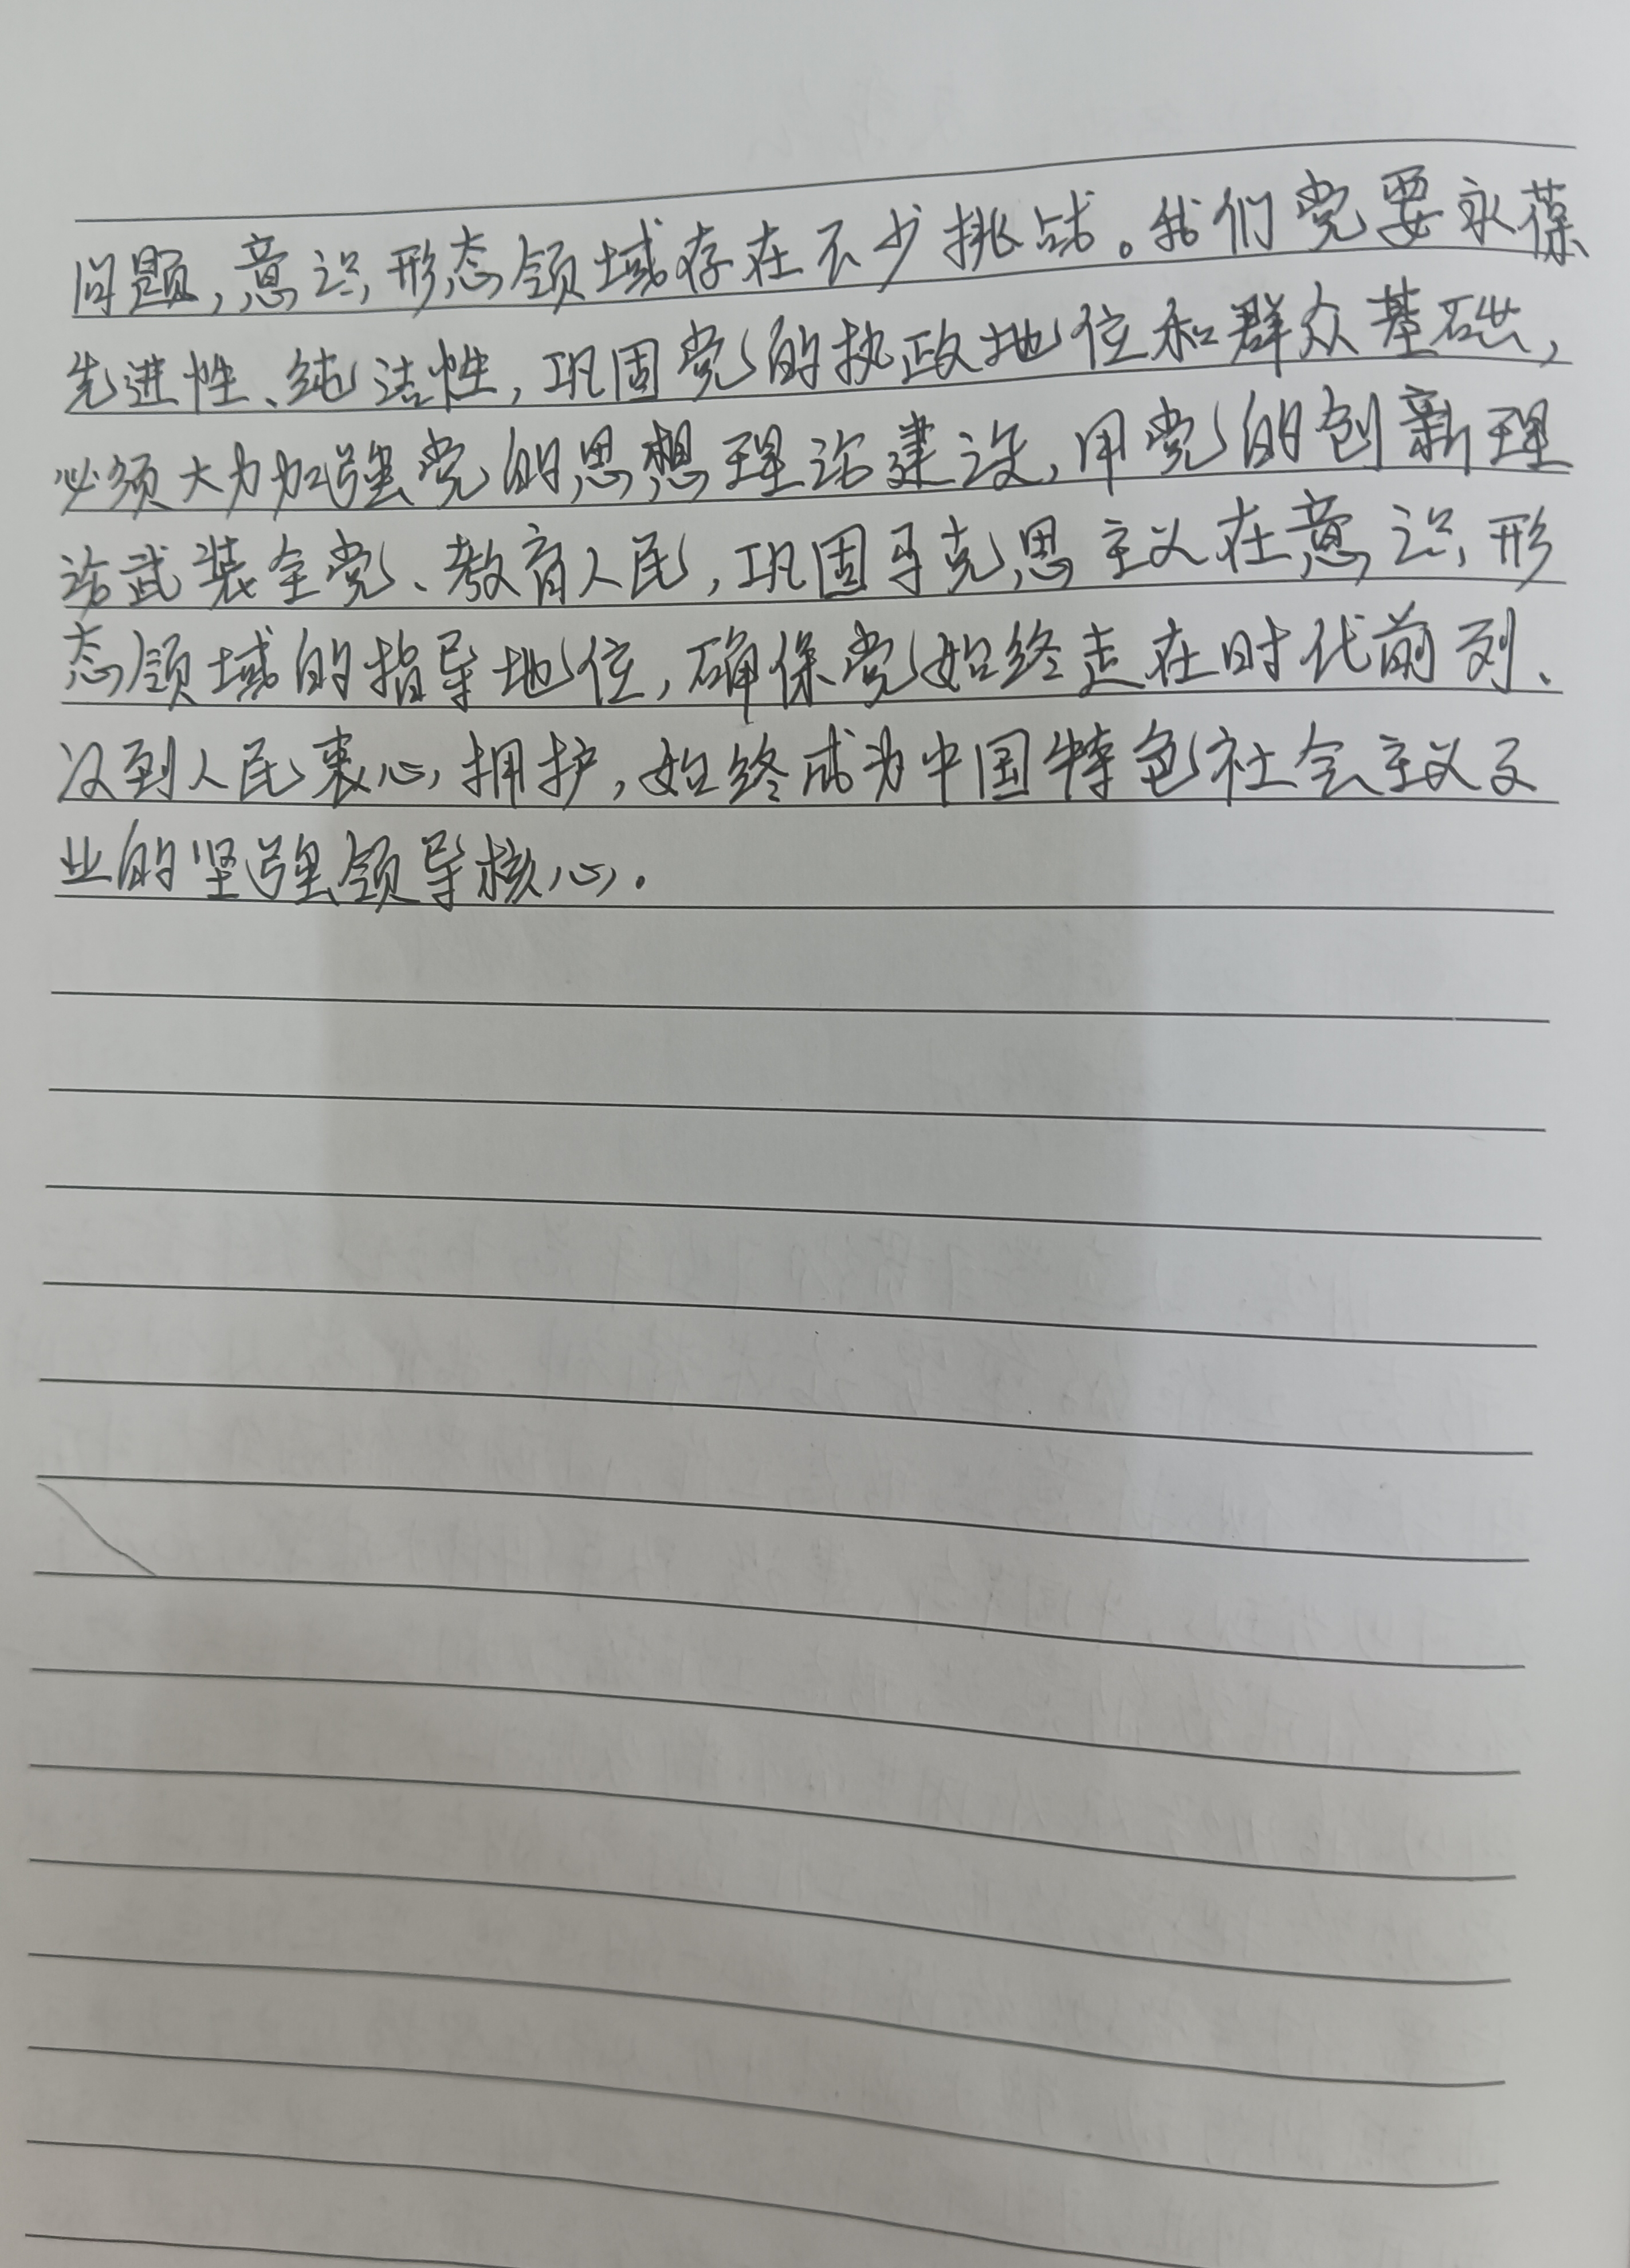 问题，意识形态领域存在不少挑战。我们党要永葆
先进性、纯洁性，巩固党的执政地位和群众基础，
必须大力加强党的思想理论建设，用党的创新理
论武装全党、教育人民，巩固马克思主义在意识形
态领域的指导地位，确保党始终走在时代前列、
得到人民衷心拥护，始终成为中国特色社会主义事
业的坚强领导核心.